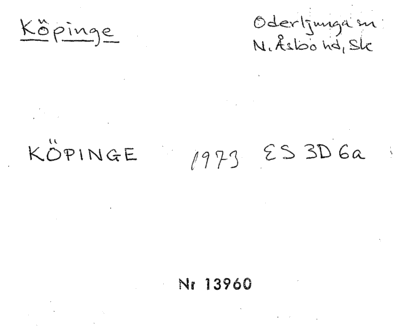 Köpinge
Oderljunga sn
N. Åsbo hd, Sk
KÖPINGE 1973 ES 3D6a
Nr 13960